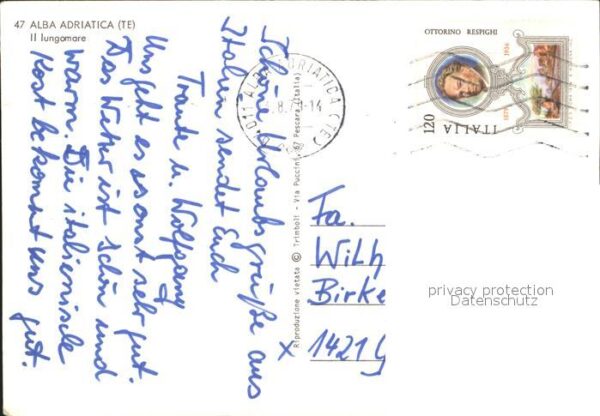 47 ALBA ADRIATICA (TE)
Il lungomare
Schöne Urlaubsgrüße aus
Italien sendet Euch
Traute u. Wolfgang
x
Uns geht es sonst sehr gut.
Das Wetter ist schön und
warm. Die italienische
Kost bekommt uns gut.
Riproduzione vietata © Trimboli - Via Puccini, 67 Pescara (Italia)
ALBA ADRIATICA (TE)
OTTORINO RESPIGHI
1879
1936
ITALIA
120
Fa.
Wilh
Birke
1421 G
privacy protection
Datenschutz